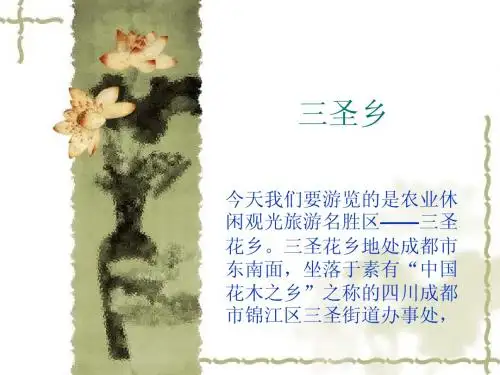 三圣乡
今天我们要游览的是农业休
闲观光旅游名胜区——三圣
花乡。三圣花乡地处成都市
东南面，坐落于素有“中国
花木之乡”之称的四川成都
市锦江区三圣街道办事处，